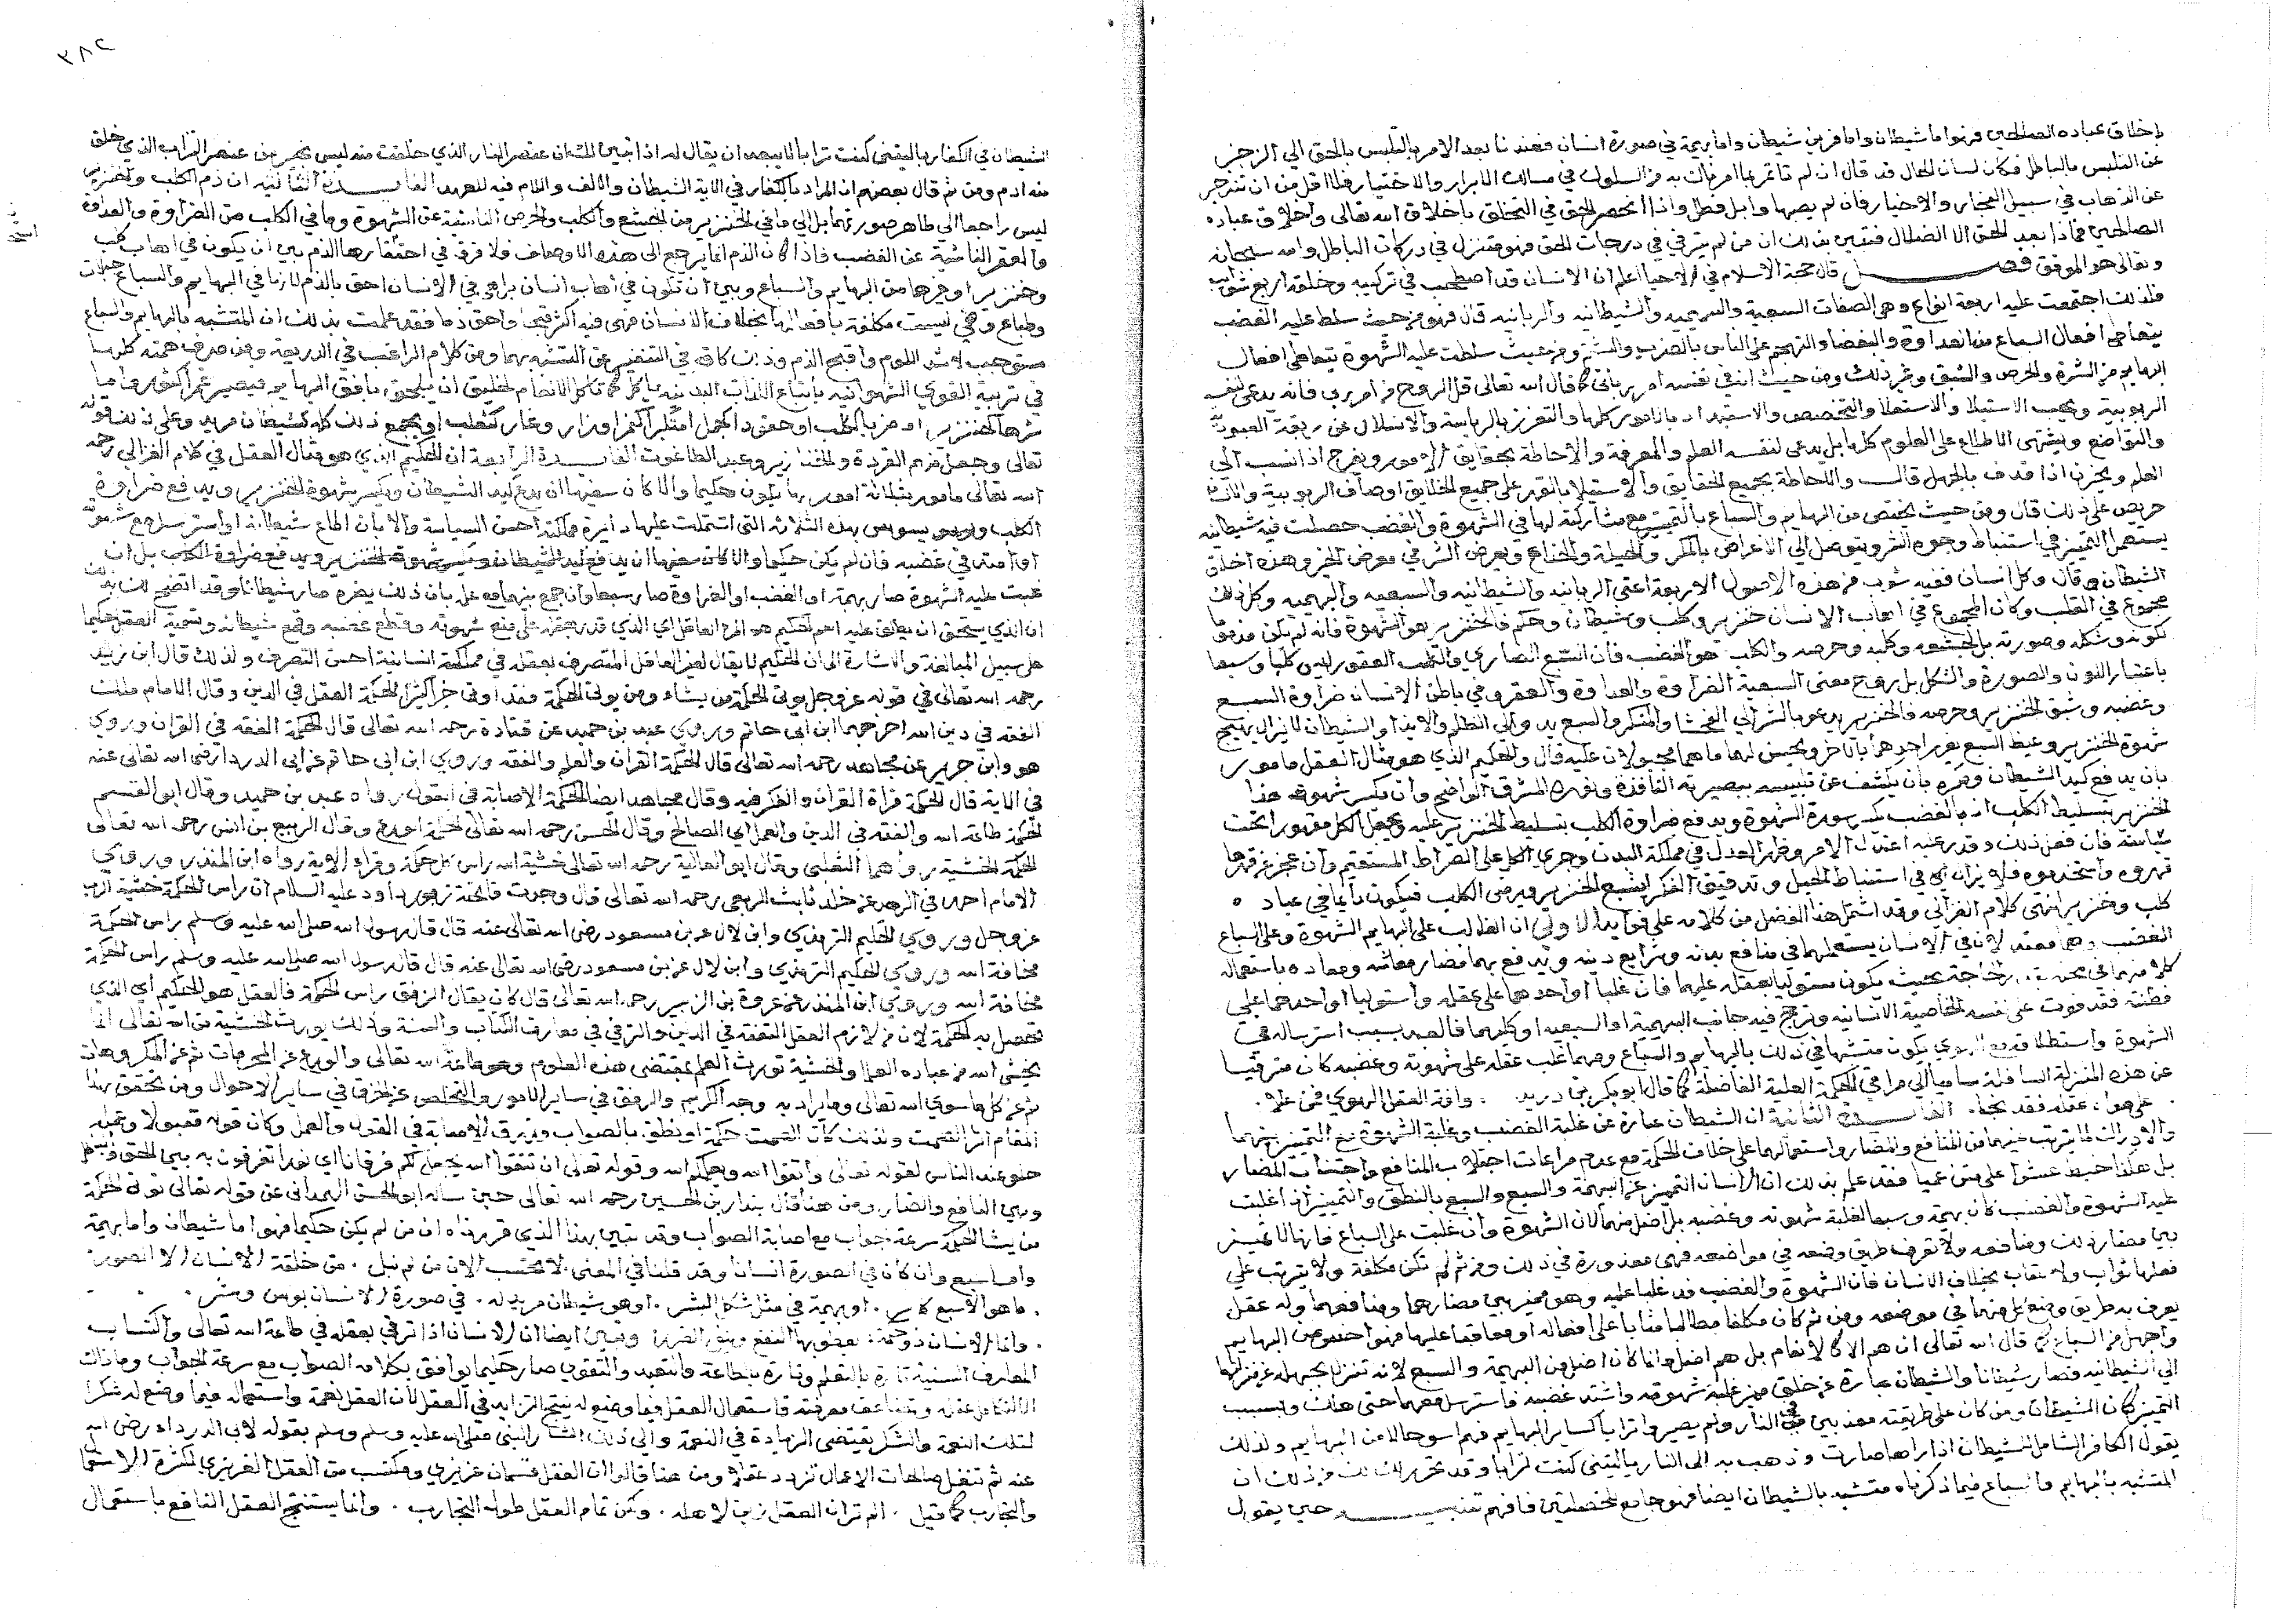 باخلاق عباده الصالحين فهو اما شيطان واما قرين شيطان واما بهيمة في صورة انسان فعندنا بعد الامر بالتلبس بالحق الى الزجر
عن التلبس بالباطل فكان لسان الحال قد قال ان لم تأتمر بما امرناك به من السلوك في مسالك الابرار والاختيار فلا اقل من ان تنزجر
عن الذهاب في سبيل الفجار فان لم يصبها وابل فطل واذا انحصر الحق في التخلق باخلاق الله تعالى واخلاق عباده
الصالحين فماذا بعد الحق الا الضلال فتعين بذلك ان من لم يترقى في درجات الحق فهو متنزل في دركات الباطل والله سبحانه
وتعالى هو الموفق فصل قال حجة الاسلام في الاحيا اعلم ان الانسان قد اصطحب في تركيبه وخلقته اربع شوايب
فلذلك اجتمعت عليه اربعة انواع وهي الصفات السبعية والبهيمية والشيطانية والربانية قال فهو من حيث سلط عليه الغضب
يتعاطى افعال السباع من العداوة والبغضا والتهجم على الناس بالضرب والشتم ومن حيث سلطت عليه الشهوة يتعاطى افعال
البهايم من الشره والحرص والشبق وغير ذلك ومن حيث انه في نفسه امر رباني كما قال الله تعالى قل الروح من امر ربي فانه يدعي لنفسه
الربوبية ويحب الاستيلا والاستعلا والتخصص والاستبداد بالامور كلها والتفرد بالرياسة والانسلال عن ربقة العبودية
والتواضع ويشتهي الاطلاع على العلوم كلها بل يدعي لنفسه العلم والمعرفة والاحاطة بحقايق الامور ويفرح اذا نسب الى
العلم ويحزن اذا قذف بالجهل قال والاحاطة بجميع الحقايق والاستيلا بالقهر على جميع الخلايق اوصاف الربوبية والانسان
حريص على ذلك قال ومن حيث يختص من البهايم والسباع بالتمييز مع مشاركته لها في الشهوة والغضب حصلت فيه شيطانية
يستعمل التمييز في استنباط وجوه الشر ويتوصل الى الاغراض بالمكر والحيلة والخداع ويعرض الشر في معرض الخير وهذه اخلاق
الشيطان قال وكل انسان ففيه شوب من هذه الاصول الاربعة اعني الربانية والشيطانية والسبعية والبهيمية وكل ذلك
مجموع في القلب وكان المجموع في اهاب الانسان خنزير وكلب وشيطان وحكيم فالخنزير هو الشهوة فانه لم يكن مذموما
لكونه وشكله وصورته بل لجشعه وكلبه وحرصه والكلب هو الغضب فان السبع الضاري والكلب العقور ليس كلبا وسبعا
باعتبار اللون والصورة والشكل بل روح معنى السبعية الضراوة والعداوة والعقر وفي باطن الانسان ضراوة السبع
وغضبه وشبق الخنزير وحرصه فالخنزير يدعو بالشره الى الفحشا والمنكر والسبع يدعو الى الظلم والايذا والشيطان لا يزال يهيج
شهوة الخنزير وغيظ السبع يغري احدهما بالاخر ويحسن لهما ما هما مجبولان عليه قال والحكيم الذي هو مثال العقل مامور
بان يدفع كيد الشيطان ومكره بان يكشف عن تلبيسه ببصيرته النافذة ونوره المشرق الواضح وان يكسر شهوة هذا
الخنزير بتسليط الكلب اذ بالغضب تكسر سورة الشهوة ويدفع ضراوة الكلب بتسليط الخنزير عليه ويجعل الكل مقهورا تحت
سياسته فان فعل ذلك وقدر عليه اعتدل الامر وظهر العدل في مملكة البدن وجرى الكل على الصراط المستقيم وان عجز عن قهرها
قهروه واستخدموه فلا يزال في استنباط الحيل وتدقيق الفكر ليشبع الخنزير ويرضي الكلب فيكون دائما في عبادة
كلب وخنزير انتهى كلام الغزالي وقد اشتمل هذا الفصل من كلامه على فوايد الاولى ان الغالب على البهايم الشهوة وعلى السباع
الغضب وهما معتدلان في الانسان يستعملهما في منافع بدنه وشرايع دينه ويدفع بهما مضار معاشه ومعاده باستعماله
كلا منهما في بحيث يكون مستوليا بعقله عليهما فان غلبا او احدهما على عقله واستوليا او احدهما على
فطنته فقد فوت على نفسه الخاصية الانسانية وترجح فيه جانب البهيمية او السبعية او كليهما فالعبد بسبب استرساله في
الشهوة واستطلاقه مع الهوى يكون متشبها في ذلك بالبهايم والسباع ومهما غلب عقله على شهوته وغضبه كان مترقيا
عن هذه المنزلة السافلة ساميا الى مراقي الحكمة العلية الفاضلة كما قال ابو بكر بن دريد . وافة العقل الهوى فمن علا .
. على هواه عقله فقد نجا . الفايدة الثانية ان الشيطان عبارة عن غلبة الغضب وغلبة الشهوة مع التمييز بينهما
والادراك لما يترتب عنهما من المنافع والمضار واستعمالهما على خلاف الحكمة مع عدم مراعات اجتلاب المنافع واجتناب المضار
بل هكذا خبط عشوا على متن عميا فقد علم بذلك ان الانسان المتميز عن البهيمة والسبع بالنطق والتمييز اذا غلبت
عليه الشهوة والغضب كان بهيمة وسبعا لغلبة شهوته وغضبه بل اضل منهما لان الشهوة وان غلبت على السباع فانها لا تميز
بين مضار ذلك ومنافعه ولا تعرف طريق وضعه في مواضعه فهي معذورة في ذلك ومن ثم لم تكن مكلفة ولا يترتب على
فعلها ثواب ولا عقاب بخلاف الانسان فان الشهوة والغضب قد غلبا عليه وهو مميز بين مضارهما ومنافعهما وله عقل
يعرف به طريق وضع كل منهما في موضعه ومن ثم كان مكلفا مطالبا مثابا على افعاله او معاقبا عليها فهو اخس من البهايم
واجهل من السباع كما قال الله تعالى ان هم الا كالانعام بل هم اضل وانما كان اضل من البهيمة والسبع لانه تنزل بجهله عن منزلتها
الى الشيطانية فصار شيطانا والشيطان عبارة عن خلق مميز غلبته شهوته واشتد غضبه فاسترسل معهما حتى هلك وبسبب
التمييز كان الشيطان ومن كان على طريقته معذبين في النار ولم يصيروا ترابا كساير البهايم فهم اسو حالا من البهايم ولذلك
يقول الكافر الشامل للشيطان اذا راها صارت وذهب به الى النار يا ليتني كنت ترابا وقد تحرر لك من ذلك ان
المتشبه بالبهايم والسباع فيما ذكرناه متشبه بالشيطان ايضا فهو جامع للخصلتين فافهم تنبيه حين يقول
٣٨٢
الشيطان في الكفار يا ليتني كنت ترابا لا يبعد ان يقال له اذا تبين للشيطان عنصر النار الذي خلقت منه ليس بخير من عنصر التراب الذي خلق
منه ادم ومن ثم قال بعضهم ان المراد بالكافر في الاية الشيطان والالف واللام فيه للعهد الفايدة الثالثة ان ذم الكلب والخنزير
ليس راجعا الى ظاهر صورتهما بل الى ما في الخنزير من الجشع والكلب والحرص الناشية عن الشهوة وما في الكلب من الضراوة والعداوة
والعقر الناشية عن الغضب فاذا كان الذم انما يرجع الى هذه الاوصاف فلا فرق في احتقارها الذم بين ان يكون في اهاب كلب
وخنزير او غيرهما من البهايم والسباع وبين ان تكون في اهاب انسان بل هي في الانسان احق بالذم لانها في البهايم والسباع جبلات
وطباع وهي ليست مكلفة بافعالها بخلاف الانسان فهي فيه اكثر قبحا واحق ذما فقد علمت بذلك ان المتشبه بالبهايم والسباع
مستوجب لاشد اللوم واقبح الذم وذلك كاف في التنفير عن التشبه بها ومن كلام الراغب في الذريعة ومن صرف همته كلها
في تربية القوى الشهوانية باتباع اللذات البدنية ياكل كما تاكل الانعام لخليق ان يلحق بافق البهايم فيصير غمرا كثورا واما
شرها كخنزير او ضريا ككلب او حقودا كجمل او متكبرا كنمر او ذا روغان كثعلب او يجمع ذلك كله كشيطان مريد وعلى ذلك قوله
تعالى وجعل منهم القردة والخنازير وعبد الطاغوت الفايدة الرابعة ان الحكيم الذي هو مثال العقل في كلام الغزالي رحمه
الله تعالى مامور بثلاثة امور بها يكون حكيما والا كان سفيها ان يدفع كيد الشيطان ويكسر شهوة الخنزير ويدفع ضراوة
الكلب ويسوس بهذه الثلاثة التي اشتملت عليها دايرة مملكته احسن السياسة والا بان اطاع شيطانه او استرسل مع شهوته
او امته في غضبه فان لم يكن حكيما والا كان سفيها ان يدفع كيد الشيطان ويكسر شهوة الخنزير ويدفع ضراوة الكلب بل ان
غلبت عليه الشهوة صار بهيمة او الغضب او الضراوة صار سبعا وان جمع بينهما مع علمه بان ذلك يضره صار شيطانا وقد اتضح لك بذلك
ان الذي يستحق ان يطلق عليه اسم الحكيم هو العاقل اي الذي قدر بعقله على منع شهوته وقطع غضبه وقمع شيطانه وتسمية العقل حكيما
على سبيل المبالغة والاشارة الى ان الحكيم لا يقال لغير العاقل المتصرف بعقله في مملكته انسانيته احسن التصرف ولذلك قال ابن زيد
رحمه الله تعالى في قوله عز وجل يوتي الحكمة من يشاء ومن يوت الحكمة فقد اوتي خيرا كثيرا الحكمة العقل في الدين وقال الامام مالك
الفقه في دين الله اخرجهما ابن ابي حاتم وروى عبد بن حميد عن قتادة رحمه الله تعالى قال الحكمة الفقه في القران وروى
هو وابن جرير عن مجاهد رحمه الله تعالى قال الحكمة القران والعلم والفقه وروى ابن ابي حاتم عن ابي الدردا رضي الله تعالى عنه
في الاية قال الحكمة قراة القران والفكر فيه وقال مجاهد ايضا الحكمة الاصابة في القول رواه عبد بن حميد وقال ابو القسم
الحكمة طاعة الله والفقه في الدين والعمل اي الصالح وقال الحسن رحمه الله تعالى الحكمة الورع وقال الربيع بن انس رحمه الله تعالى
الحكمة الخشية رواهما الثعلبي وقال ابو العالية رحمه الله تعالى خشية الله راس كل حكمة وقراء الاية رواه ابن المنذر وروى
الامام احمد في الزهد عن خالد بن ثابت الربعي رحمه الله تعالى قال وجدت فاتحة زبور داود عليه السلام ان راس الحكمة خشية الرب
عز وجل وروى الحكيم الترمذي وابن لال عن ابن مسعود رضي الله تعالى عنه قال قال رسول الله صلى الله عليه وسلم راس الحكمة
مخافة الله وروى الحكيم الترمذي وابن لال عن ابن مسعود رضي الله تعالى عنه قال قال رسول الله صلى الله عليه وسلم راس الحكمة
مخافة الله وروى ابن المنذر عن عروة بن الزبير رحمه الله تعالى قال كان يقال الرفق راس الحكمة فالعقل هو الحكيم اي الذي
تحصل به الحكمة لان من لازم العقل التفقه في الدين والترقي في معارف الكتاب والسنة وذلك يورث الخشية من الله تعالى انما
يخشى الله من عباده العلما والخشية تورث العلم بمقتضى هذه العلوم وهو طاعة الله تعالى والورع عن المحرمات ثم عن المكروهات
ثم عن كل ما سوى الله تعالى وما يراد به وجه الكريم والرفق في ساير الامور والتخلص عن الخرق في ساير الاحوال ومن تحقق بهذا
المقام اثر الصمت ولذلك كان الصمت حكمة او نطق بالصواب ورزق الاصابة في القول والعمل وكان قوله مقبولا وعمله
حلو عند الناس لقوله تعالى واتقوا الله ويعلمكم الله وقوله تعالى ان تتقوا الله يجعل لكم فرقانا اي نورا تفرقون به بين الحق والباطل
وبين النافع والضار ومن هنا قال بندار بن الحسين رحمه الله تعالى حين ساله ابو الحسن الهمداني عن قوله تعالى يوتي الحكمة
من يشا الحكمة سرعة جواب مع اصابة الصواب وقد تبين بهذا الذي قررناه ان من لم يكن حكيما فهو اما شيطان واما بهيمة
واما سبع وان كان في الصورة انسانا وقد قلنا في المعنى . لا تحتسب الانسان من لم ينل . من خلقة الانسان الا الصورة
. ما هو الا سبع كاسر . او بهيمة في مثل شكل البشر . او هو شيطان مريد له . في صورة الانسان بوس وشر .
. وانما الانسان ذو حكمة . يعقل بها النفع وينفي الضرر . وتبين ايضا ان الانسان اذا ترقى بعقله في طاعة الله تعالى واكتساب
المعارف السنية تارة بالتعلم وتارة بالطاعة والتعبد والتقوى صار حكيما يوافق بكلامه الصواب مع سرعة الجواب وما ذاك
الا لتكامل عقله وتضاعف معرفته فاستعمال العقل فيما وضع له ينتج التزايد في العقل لان العقل نعمة واستعماله فيما وضع له شكرا
لتلك النعمة والشكر يقتضي الزيادة في النعمة والى ذلك اشار النبي صلى الله عليه وسلم بقوله لابي الدرداء رضي الله
عنه ثم تنفل صالحات الاعمال تزدد عقلا ومن هنا قالوا ان العقل قسمان غريزي ومكتسب من العقل الغريزي لكثرة الاستعمال
والتجارب كما قيل . الم تر ان العقل زين لاهله . ولكن تمام العقل طول التجارب . وانما يستنتج العقل النافع باستعمال